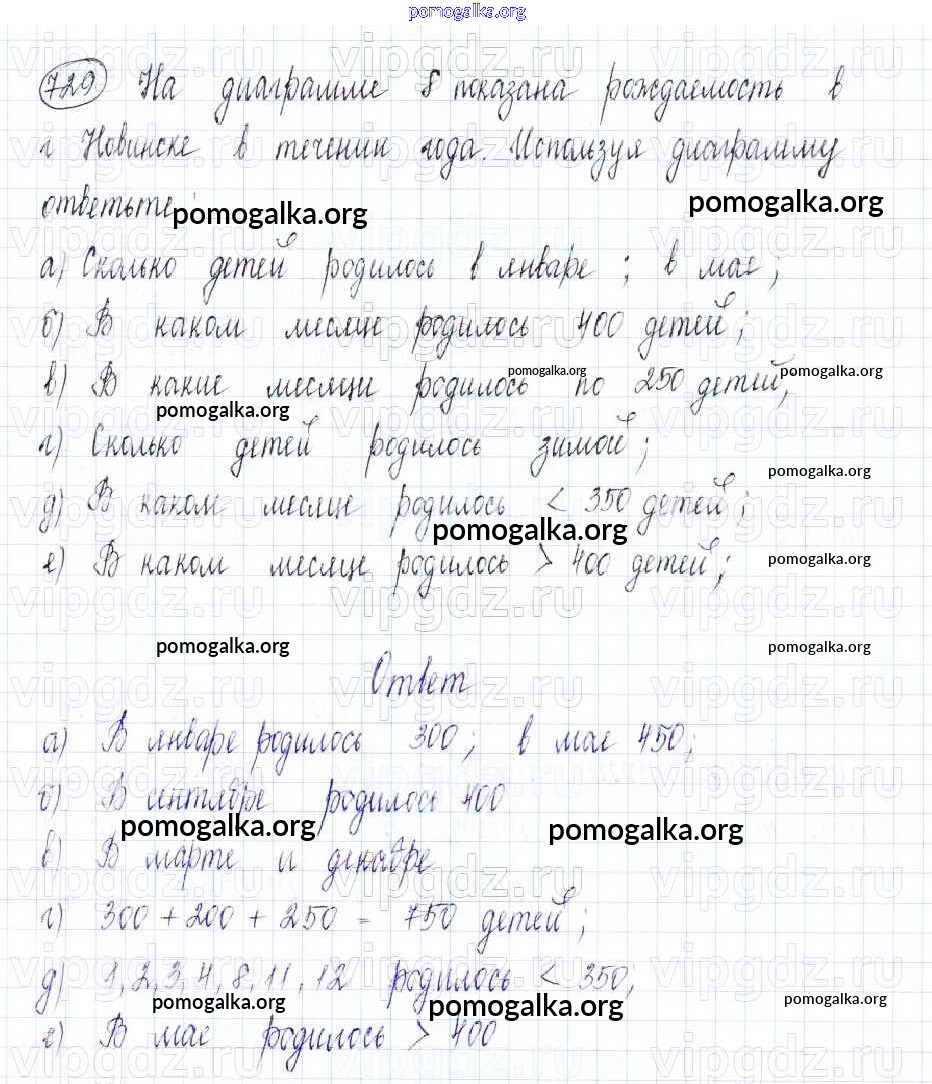 pomogalka.org
729 На диаграмме 8 показана рождаемость в
г Новинске в течении года. Используя диаграмму
ответьте:
pomogalka.org pomogalka.org
а) Сколько детей родилось в январе ; в мае;
б) В каком месяце родилось 400 детей;
pomogalka.org pomogalka.org
в) В какие месяцы родилось по 250 детей;
pomogalka.org
г) Сколько детей родилось зимой;
pomogalka.org
д) В каком месяце родилось < 350 детей;
pomogalka.org
е) В каком месяце родилось > 400 детей;
pomogalka.org
pomogalka.org pomogalka.org
Ответ
а) В январе родилось 300; в мае 450;
б) В сентябре родилось 400
pomogalka.org pomogalka.org
в) В марте и декабре
г) 300 + 200 + 250 = 750 детей;
д) 1, 2, 3, 4, 8, 11, 12 родилось < 350;
pomogalka.org pomogalka.org pomogalka.org
е) В мае родилось > 400
vipgdz.ru